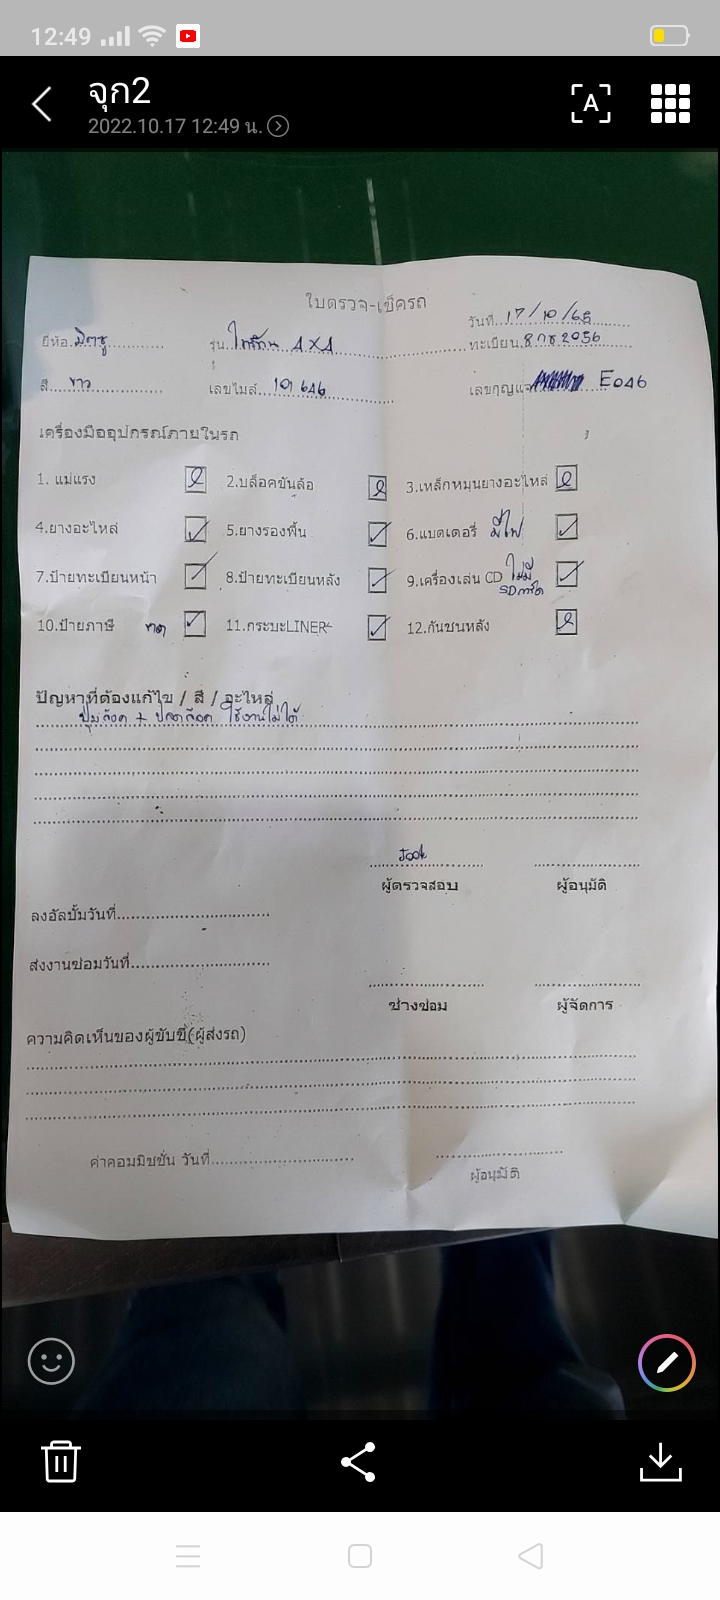 12:49
จุก2
2022.10.17 12:49 น.
A
ใบตรวจ-เช็ครถ
วันที่ 17/10/65
ยี่ห้อ มิตซู รุ่น ไทรทัน 4X4 ทะเบียน 8กธ2056
สี ขาว เลขไมล์ 101646 เลขกุญแจ E046
เครื่องมืออุปกรณ์ภายในรถ
1. แม่แรง 2.บล็อคขันล้อ 3.เหล็กหมุนยางอะไหล่
4.ยางอะไหล่ 5.ยางรองพื้น 6.แบตเตอรี่ มีไฟ
7.ป้ายทะเบียนหน้า 8.ป้ายทะเบียนหลัง 9.เครื่องเล่น CD ไม่มี
SDการ์ด
10.ป้ายภาษี ขาด 11.กระบะLINER 12.กันชนหลัง
ปัญหาที่ต้องแก้ไข / สี / อะไหล่
ปุ่มล๊อค + ปลดล๊อค ใช้งานไม่ได้
Jook
ผู้ตรวจสอบ ผู้อนุมัติ
ลงอัลบั้มวันที่
ส่งงานซ่อมวันที่
ช่างซ่อม ผู้จัดการ
ความคิดเห็นของผู้ขับขี่(ผู้ส่งรถ)
ค่าคอมมิชชั่น วันที่
ผู้อนุมัติ